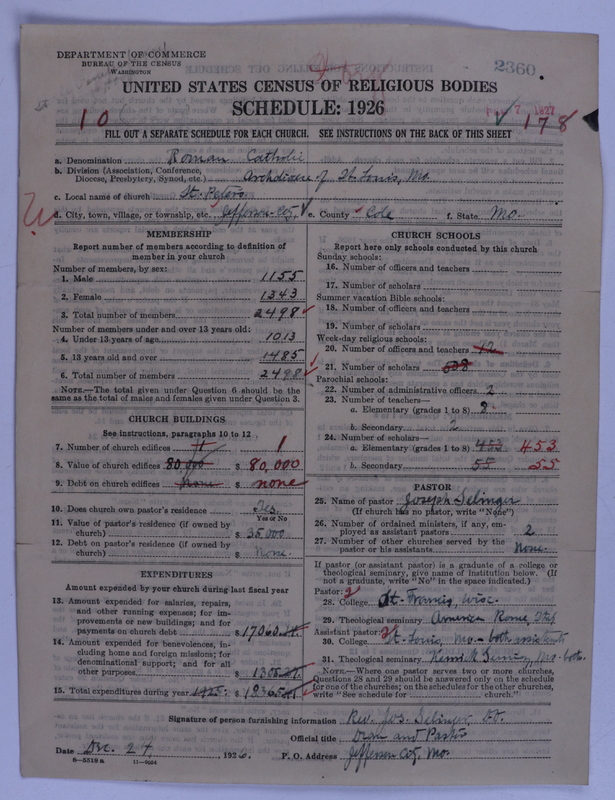 DEPARTMENT OF COMMERCE
BUREAU OF THE CENSUS
WASHINGTON
2360
UNITED STATES CENSUS OF RELIGIOUS BODIES
SCHEDULE: 1926
10
178
FILL OUT A SEPARATE SCHEDULE FOR EACH CHURCH. SEE INSTRUCTIONS ON THE BACK OF THIS SHEET
a. Denomination Roman Catholic
b. Division (Association, Conference, Diocese, Presbytery, Synod, etc.) Archdiocese of St. Louis, Mo.
c. Local name of church St. Peters
d. City, town, village, or township, etc. Jefferson City e. County Cole f. State Mo.
MEMBERSHIP
Report number of members according to definition of
member in your church
Number of members by sex:
1. Male 1155
2. Female 1343
3. Total number of members 2498
Number of members under and over 13 years old:
4. Under 13 years of age 1013
5. 13 years old and over 1485
6. Total number of members 2498
NOTE.—The total given under Question 6 should be
the same as the total of males and females given under Question 3.
CHURCH BUILDINGS
See instructions, paragraphs 10 to 12
7. Number of church edifices 1
8. Value of church edifices 80,000 $ 80,000
9. Debt on church edifices none $ none
10. Does church own pastor's residence Yes
Yes or No
11. Value of pastor's residence (if owned by
church) $ 35,000
12. Debt on pastor's residence (if owned by
church) $ None.
EXPENDITURES
Amount expended by your church during last fiscal year
13. Amount expended for salaries, repairs,
and other running expenses; for im-
provements or new buildings; and for
payments on church debt $
14. Amount expended for benevolences, in-
cluding home and foreign missions; for
denominational support; and for all
other purposes $
15. Total expenditures during year 1925: $
CHURCH SCHOOLS
Report here only schools conducted by this church
Sunday schools:
16. Number of officers and teachers
17. Number of scholars
Summer vacation Bible schools:
18. Number of officers and teachers
19. Number of scholars
Week-day religious schools:
20. Number of officers and teachers 12
21. Number of scholars 508
Parochial schools:
22. Number of administrative officers 2
23. Number of teachers—
a. Elementary (grades 1 to 8) 8
b. Secondary 2
24. Number of scholars—
a. Elementary (grades 1 to 8) 453 453
b. Secondary 55 55
PASTOR
25. Name of pastor Joseph Selinger
(If church has no pastor, write "None")
26. Number of ordained ministers, if any, em-
ployed as assistant pastors 2
27. Number of other churches served by the
pastor or his assistants None.
If pastor (or assistant pastor) is a graduate of a college or
theological seminary, give name of institution below. (If
not a graduate, write "No" in the space indicated.)
Pastor: 2
28. College St. Francis, Wisc.
29. Theological seminary American Rome, Italy
Assistant pastor: 2
30. College St. Louis, Mo.— both assistants
31. Theological seminary Kenrick Seminary, Mo. both.
NOTE.—Where one pastor serves two or more churches,
Questions 28 and 29 should be answered only on the schedule
for one of the churches; on the schedules for the other churches,
write "See schedule for church."
Signature of person furnishing information Rev. Jos. Selinger, DD.
Official title Dean and Pastor
Date Dec. 24, 1926. P. O. Address Jefferson City, Mo.
8—5318 a 11—9024